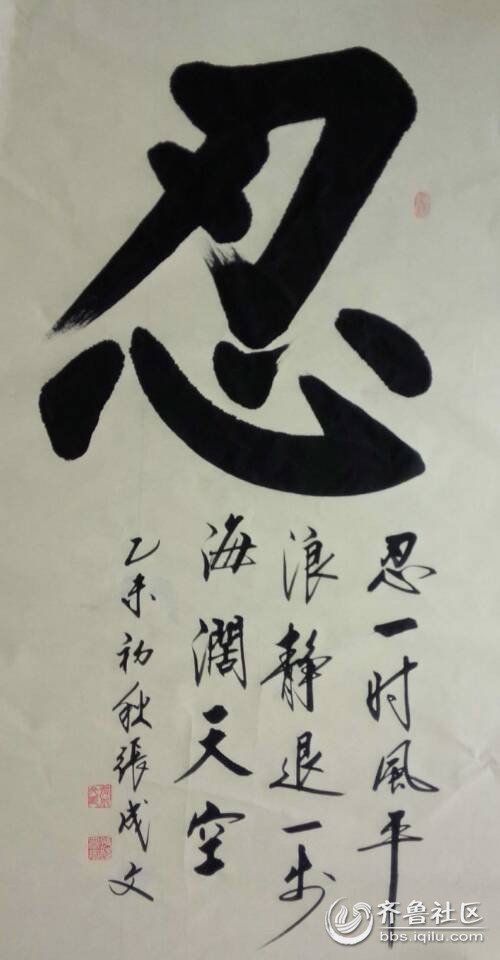 忍
忍一时風平
浪静退一步
海濶天空
乙未初秋張成文
齐鲁社区
bbs.iqilu.com